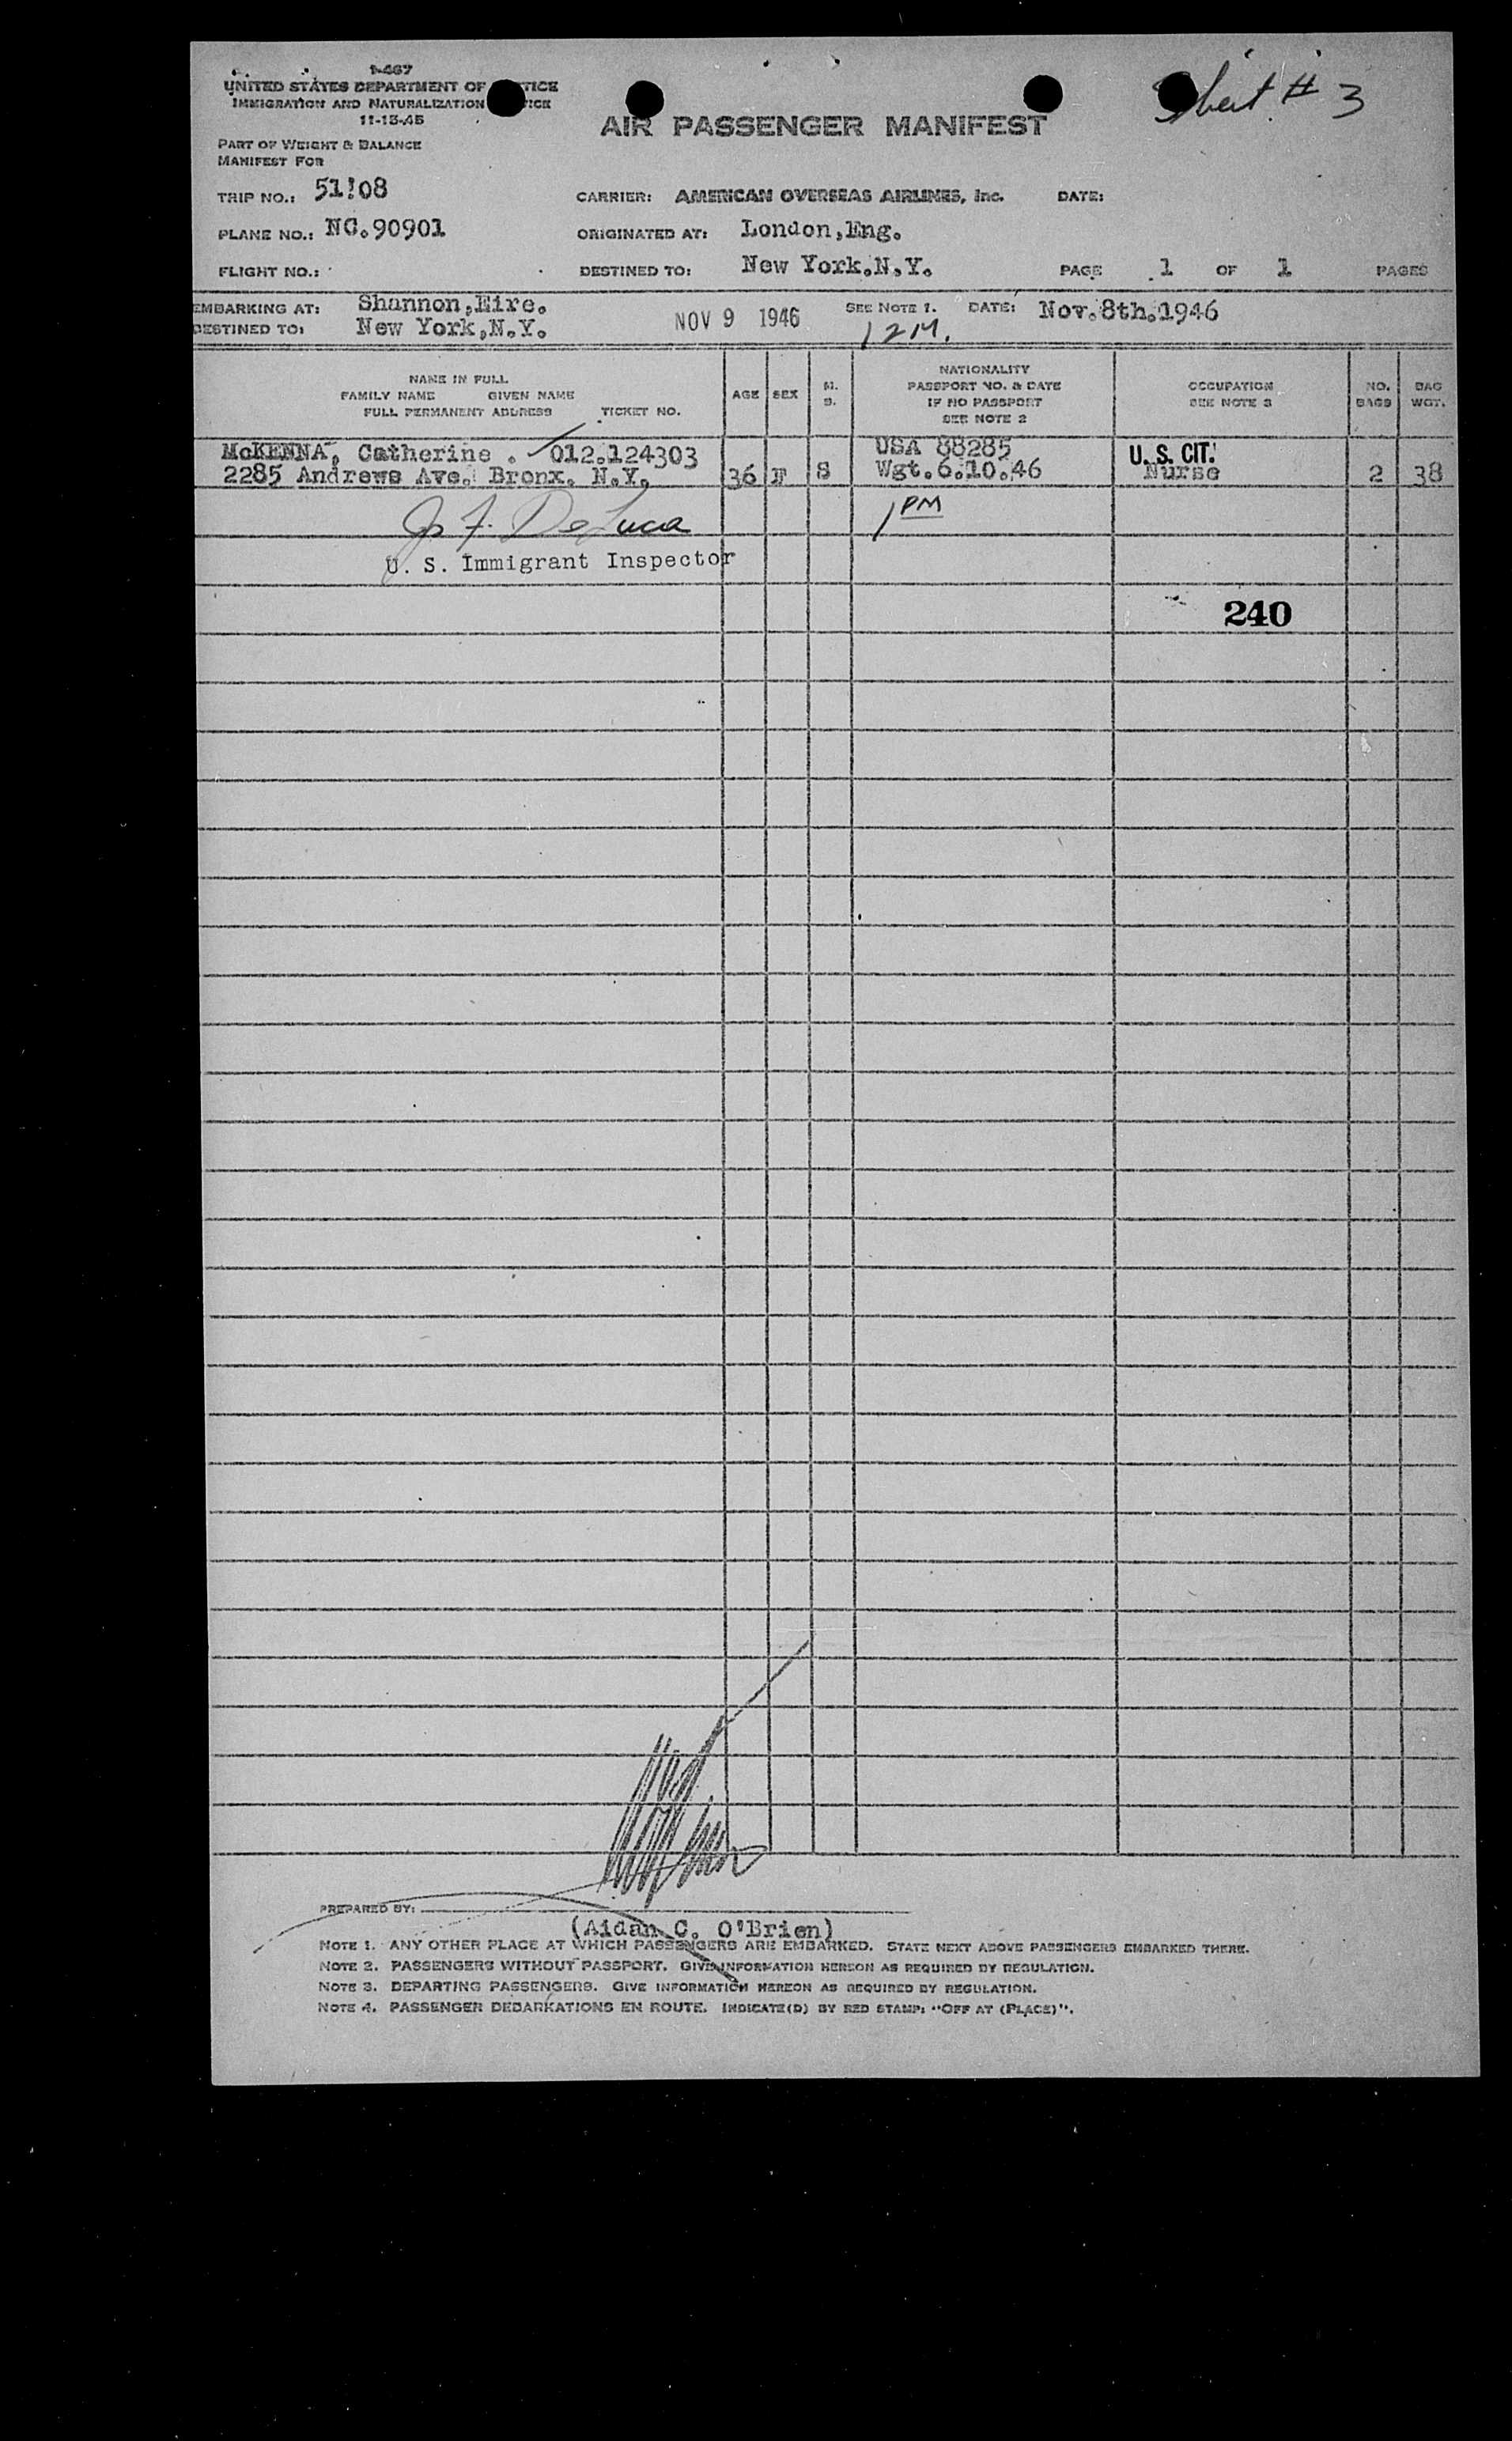 1-467
UNITED STATES DEPARTMENT OF TICE
IMMIGRATION AND NATURALIZATION ICE
11-13-45
Sheet # 3
AIR PASSENGER MANIFEST
PART OF WEIGHT & BALANCE
MANIFEST FOR
TRIP NO.: 51!08 CARRIER: AMERICAN OVERSEAS AIRLINES, Inc. DATE:
PLANE NO.: NC.90901 ORIGINATED AT: London,Eng.
FLIGHT NO.: DESTINED TO: New York.N.Y. PAGE 1 OF 1 PAGES
EMBARKING AT: Shannon,Eire. NOV 9 1946 SEE NOTE 1. DATE: Nov.8th.1946
DESTINED TO: New York,N.Y. 12M.
NAME IN FULL
FAMILY NAME GIVEN NAME
FULL PERMANENT ADDRESS TICKET NO.
AGE SEX M. S.
NATIONALITY
PASSPORT NO. & DATE
IF NO PASSPORT
SEE NOTE 2
OCCUPATION
SEE NOTE 3
NO. BAGS
BAG WGT.
McKENNA, Catherine . 012.124303 USA 88285 U.S. CIT.
2285 Andrews Ave. Bronx. N.Y. 36 F S Wgt.6.10.46 Nurse 2 38
Jo F. DeLuca 1 PM
U. S. Immigrant Inspector
240
PREPARED BY:
(Aidan C. O'Brien)
NOTE 1. ANY OTHER PLACE AT WHICH PASSENGERS ARE EMBARKED. STATE NEXT ABOVE PASSENGERS EMBARKED THERE.
NOTE 2. PASSENGERS WITHOUT PASSPORT. GIVE INFORMATION HEREON AS REQUIRED BY REGULATION.
NOTE 3. DEPARTING PASSENGERS. GIVE INFORMATION HEREON AS REQUIRED BY REGULATION.
NOTE 4. PASSENGER DEBARKATIONS EN ROUTE. INDICATE(D) BY RED STAMP: "OFF AT (PLACE)".